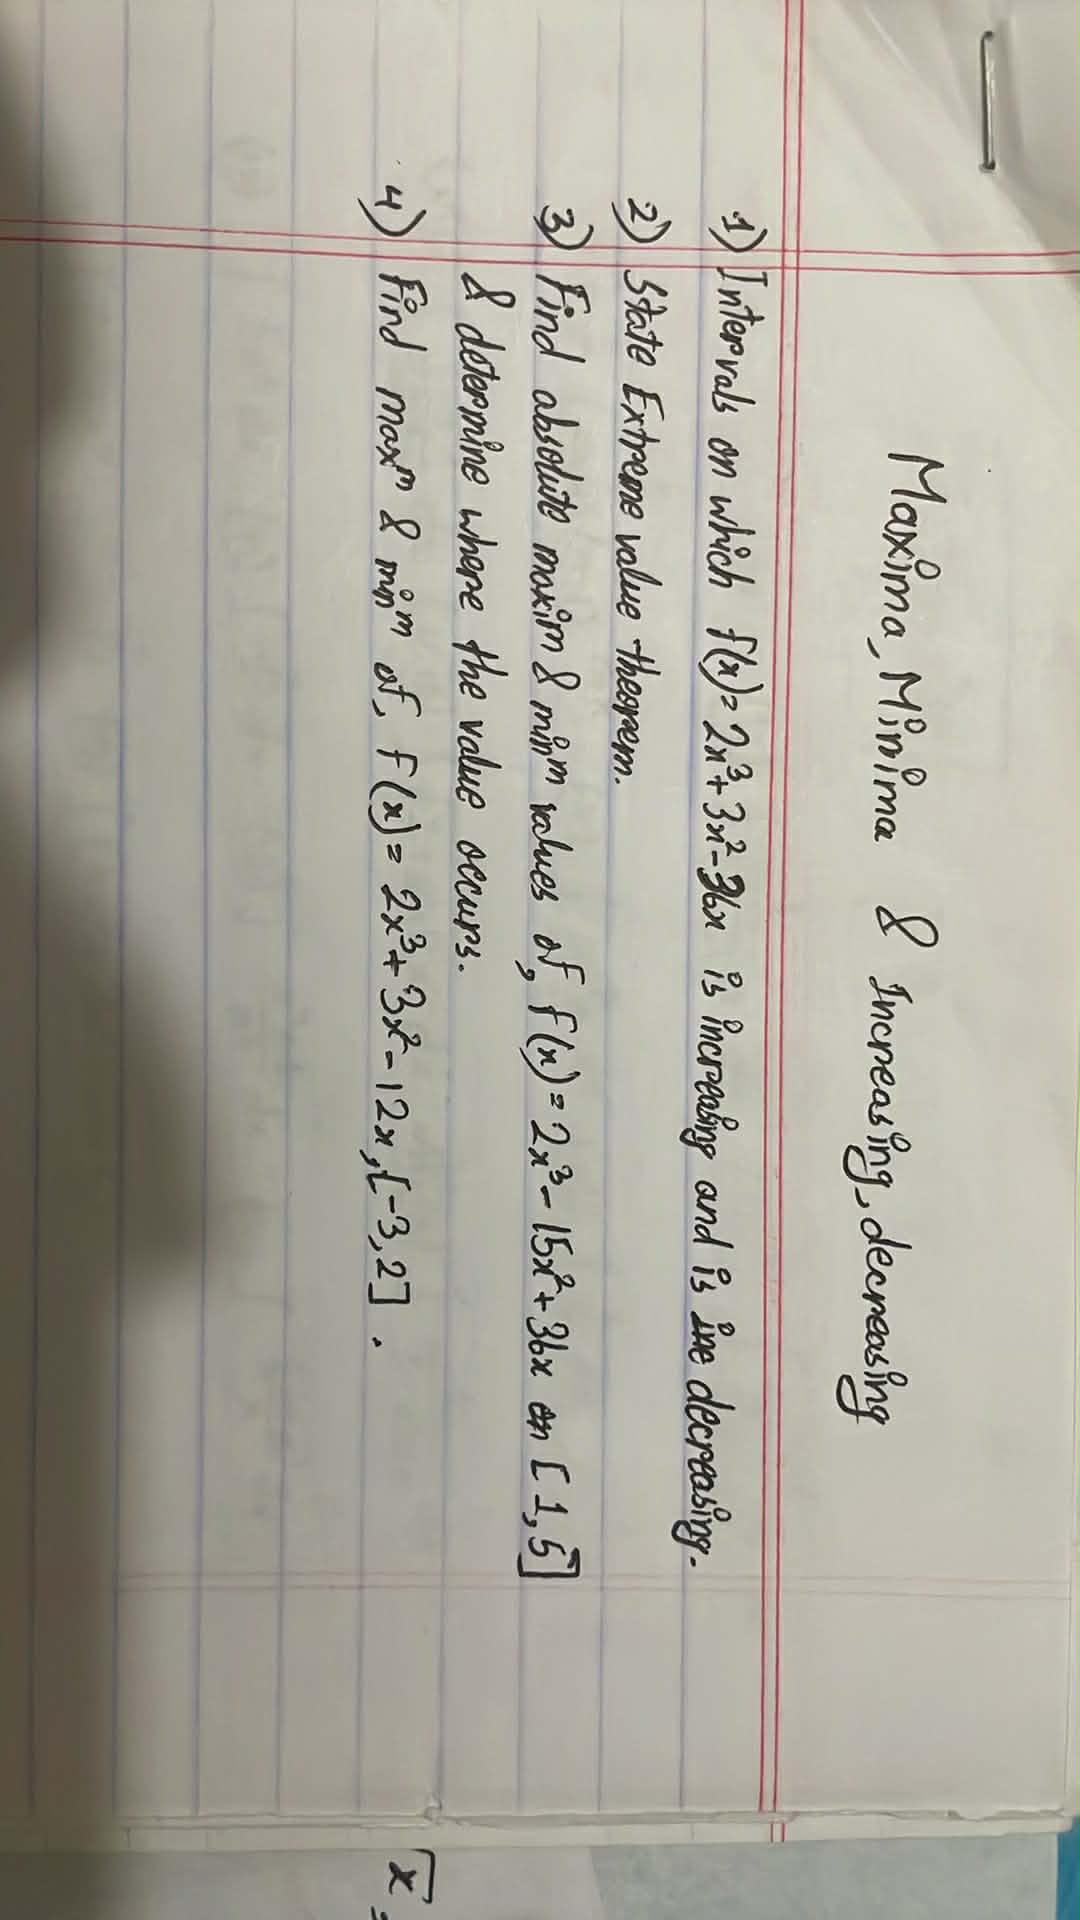 Maxima, Minima & Increasing, decreasing
1) Intervals on which f(x) = 2x³ + 3x² - 36x is increasing and is decreasing.
2) State Extreme value theorem.
3) Find absolute maxim & minᵐ values of, f(x) = 2x³ - 15x² + 36x on [1,5]
& determine where the value occurs.
4) Find maxᵐ & minᵐ of, f(x) = 2x³ + 3x² - 12x, [-3,2].
√x